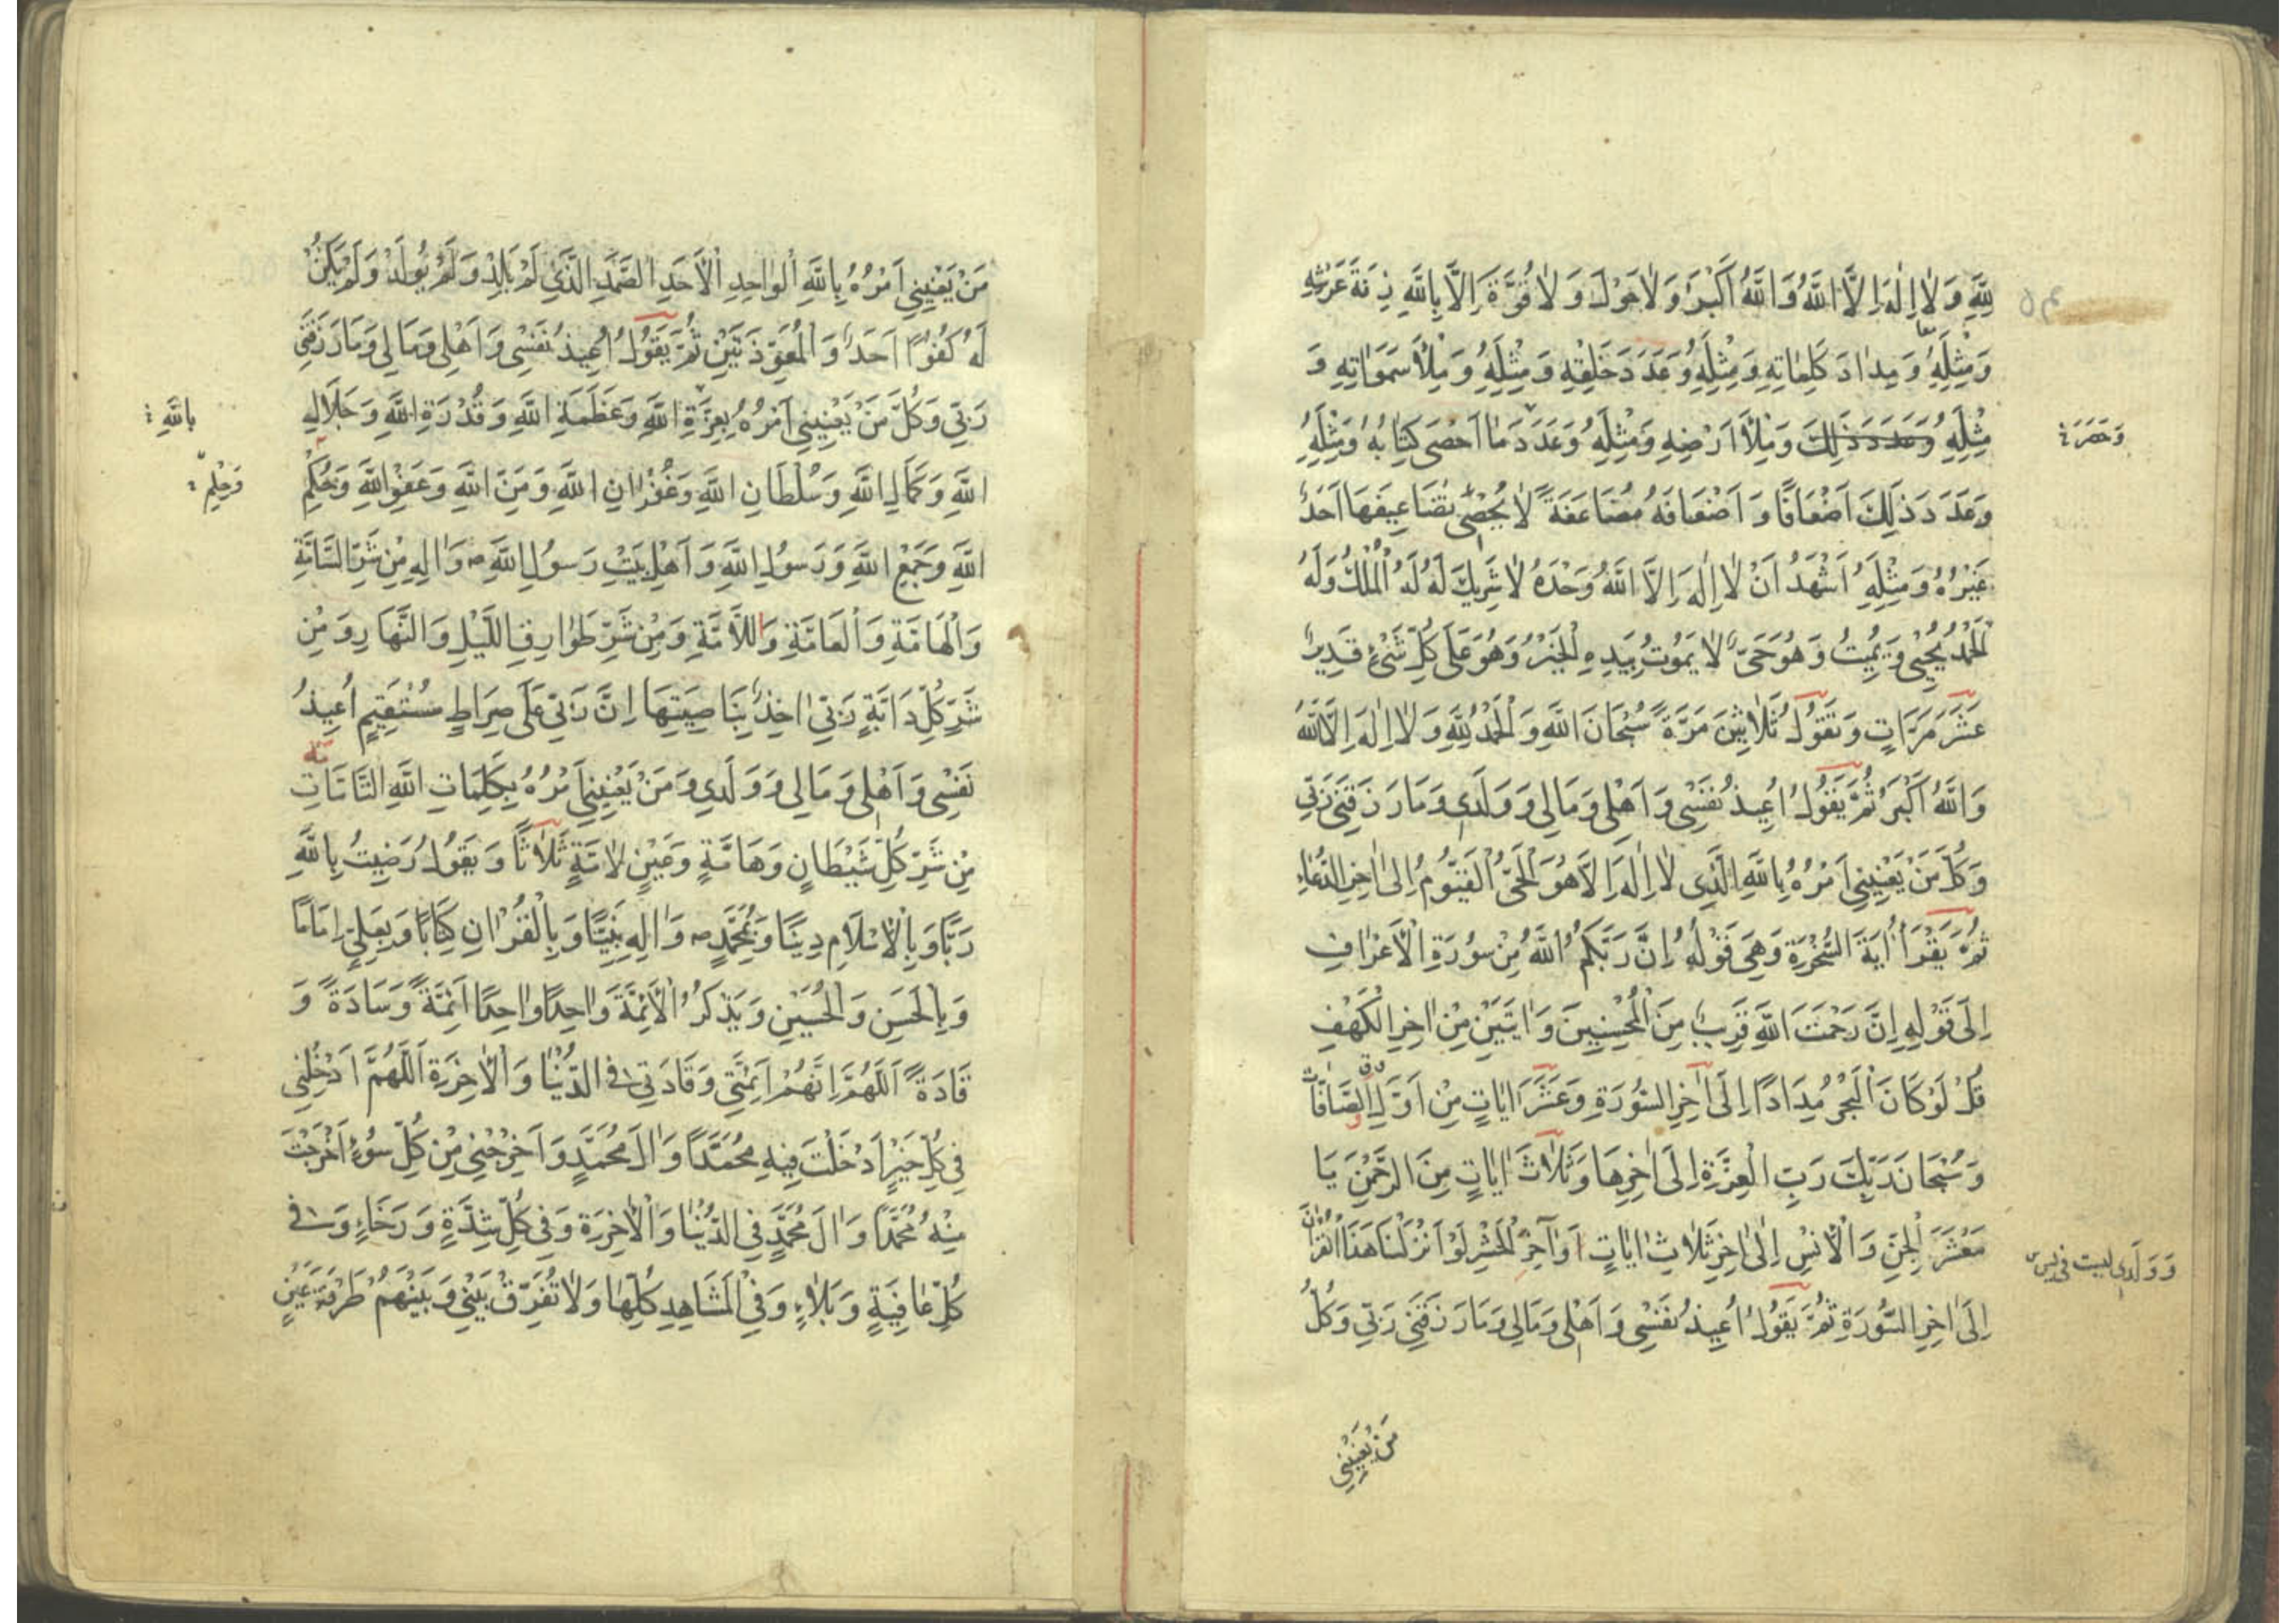 لِلّٰهِ وَلَا اِلٰهَ اِلَّا اللّٰهُ وَاللّٰهُ اَكْبَرُ وَلَا حَوْلَ وَلَا قُوَّةَ اِلَّا بِاللّٰهِ زِنَةَ عَرْشِهِ
وَمِثْلِهِ وَمِدَادَ كَلِمَاتِهِ وَمِثْلِهِ وَعَدَدَ خَلْقِهِ وَمِثْلِهِ وَمِلْأَ سَمَوَاتِهِ وَ
مِثْلِهِ وَعَدَدَ ذٰلِكَ وَمِلْأَ اَرْضِهِ وَمِثْلِهِ وَعَدَدَ مَا اَحْصَى كِتَابُهُ وَمِثْلِهِ
وَعَدَدَ ذٰلِكَ اَضْعَافًا وَاَضْعَافَهُ مُضَاعَفَةً لَا يُحْصِى تَضَاعِيفَهَا اَحَدٌ
غَيْرُهُ وَمِثْلِهِ اَشْهَدُ اَنْ لَا اِلٰهَ اِلَّا اللّٰهُ وَحْدَهُ لَا شَرِيكَ لَهُ لَهُ الْمُلْكُ وَلَهُ
الْحَمْدُ يُحْيِى وَيُمِيتُ وَهُوَ حَىٌّ لَا يَمُوتُ بِيَدِهِ الْخَيْرُ وَهُوَ عَلَى كُلِّ شَىْءٍ قَدِيرٌ
عَشْرَ مَرَّاتٍ وَتَقُولُ ثَلَاثِينَ مَرَّةً سُبْحَانَ اللّٰهِ وَالْحَمْدُ لِلّٰهِ وَلَا اِلٰهَ اِلَّا اللّٰهُ
وَاللّٰهُ اَكْبَرُ ثُمَّ يَقُولُ اُعِيذُ نَفْسِى وَاَهْلِى وَمَالِى وَوَلَدِى وَمَا رَزَقَنِى رَبِّى
وَكُلَّ مَنْ يَعْنِينِى اَمْرُهُ بِاللّٰهِ الَّذِى لَا اِلٰهَ اِلَّا هُوَ الْحَىُّ الْقَيُّومُ اِلَى اٰخِرِ الدُّعَاءِ
ثُمَّ يَقْرَأُ اٰيَةَ السُّخْرَةِ وَهِىَ قَوْلُهُ اِنَّ رَبَّكُمُ اللّٰهُ مِنْ سُورَةِ الْاَعْرَافِ
اِلَى قَوْلِهِ اِنَّ رَحْمَتَ اللّٰهِ قَرِيبٌ مِنَ الْمُحْسِنِينَ وَاٰيَتَيْنِ مِنْ اٰخِرِ الْكَهْفِ
قُلْ لَوْ كَانَ الْبَحْرُ مِدَادًا اِلَى اٰخِرِ السُّورَةِ وَعَشْرَ اٰيَاتٍ مِنْ اَوَّلِ الصَّافَّاتِ
وَسُبْحَانَ رَبِّكَ رَبِّ الْعِزَّةِ اِلَى اٰخِرِهَا وَثَلَاثَ اٰيَاتٍ مِنَ الرَّحْمٰنِ يَا
مَعْشَرَ الْجِنِّ وَالْاِنْسِ اِلَى اٰخِرِ ثَلَاثِ اٰيَاتٍ وَاٰخِرَ الْحَشْرِ لَوْ اَنْزَلْنَا هَذَا الْقُرْاٰنَ
اِلَى اٰخِرِ السُّورَةِ ثُمَّ يَقُولُ اُعِيذُ نَفْسِى وَاَهْلِى وَمَالِى وَمَا رَزَقَنِى رَبِّى وَكُلَّ
مَنْ يَعْنِينِى
وَوَلَدِى ليست فى
مَنْ يَعْنِينِى اَمْرُهُ بِاللّٰهِ الْوَاحِدِ الْاَحَدِ الصَّمَدِ الَّذِى لَمْ يَلِدْ وَلَمْ يُولَدْ وَلَمْ يَكُنْ
لَهُ كُفُوًا اَحَدٌ وَالْمُعَوِّذَتَيْنِ ثُمَّ يَقُولُ اُعِيذُ نَفْسِى وَاَهْلِى وَمَالِى وَمَا رَزَقَنِى
رَبِّى وَكُلَّ مَنْ يَعْنِينِى اَمْرُهُ بِعِزَّةِ اللّٰهِ وَعَظَمَةِ اللّٰهِ وَقُدْرَةِ اللّٰهِ وَجَلَالِ
اللّٰهِ وَكَمَالِ اللّٰهِ وَسُلْطَانِ اللّٰهِ وَغُفْرَانِ اللّٰهِ وَمَنِّ اللّٰهِ وَعَفْوِ اللّٰهِ وَحُكْمِ
اللّٰهِ وَجَمْعِ اللّٰهِ وَرَسُولِ اللّٰهِ وَاَهْلِ بَيْتِ رَسُولِ اللّٰهِ ص وَاٰلِهِ مِنْ شَرِّ السَّامَّةِ
وَالْهَامَّةِ وَالْعَامَّةِ وَاللَّامَّةِ وَمِنْ شَرِّ طَوَارِقِ اللَّيْلِ وَالنَّهَارِ وَمِنْ
شَرِّ كُلِّ دَابَّةٍ رَبِّى اٰخِذٌ بِنَاصِيَتِهَا اِنَّ رَبِّى عَلَى صِرَاطٍ مُسْتَقِيمٍ اُعِيذُ
نَفْسِى وَاَهْلِى وَمَالِى وَوَلَدِى وَمَنْ يَعْنِينِى اَمْرُهُ بِكَلِمَاتِ اللّٰهِ التَّامَّاتِ
مِنْ شَرِّ كُلِّ شَيْطَانٍ وَهَامَّةٍ وَعَيْنٍ لَامَّةٍ ثَلَاثًا وَيَقُولُ رَضِيتُ بِاللّٰهِ
رَبًّا وَبِالْاِسْلَامِ دِينًا وَبِمُحَمَّدٍ ص وَاٰلِهِ نَبِيًّا وَبِالْقُرْاٰنِ كِتَابًا وَبِعَلِىٍّ اِمَامًا
وَبِالْحَسَنِ وَالْحُسَيْنِ وَيَذْكُرُ الْاَئِمَّةَ وَاحِدًا وَاحِدًا اَئِمَّةً وَسَادَةً وَ
قَادَةً اَللّٰهُمَّ اِنَّهُمْ اَئِمَّتِى وَقَادَتِى فِى الدُّنْيَا وَالْاٰخِرَةِ اَللّٰهُمَّ اَدْخِلْنِى
فِى كُلِّ خَيْرٍ اَدْخَلْتَ فِيهِ مُحَمَّدًا وَاٰلَ مُحَمَّدٍ وَاَخْرِجْنِى مِنْ كُلِّ سُوءٍ اَخْرَجْتَ
مِنْهُ مُحَمَّدًا وَاٰلَ مُحَمَّدٍ فِى الدُّنْيَا وَالْاٰخِرَةِ وَفِى كُلِّ شِدَّةٍ وَرَخَاءٍ وَفِى
كُلِّ عَافِيَةٍ وَبَلَاءٍ وَفِى الْمَشَاهِدِ كُلِّهَا وَلَا تُفَرِّقْ بَيْنِى وَبَيْنَهُمْ طَرْفَةَ عَيْنٍ
بِاللّٰهِ
وَحِلْمِ